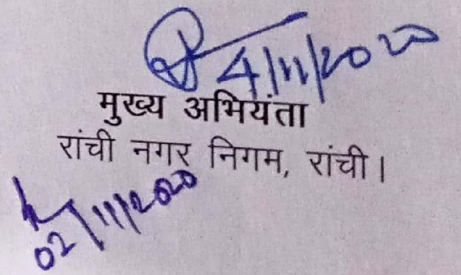 4/11/2020
मुख्य अभियंता
रांची नगर निगम, रांची।
02/11/2020